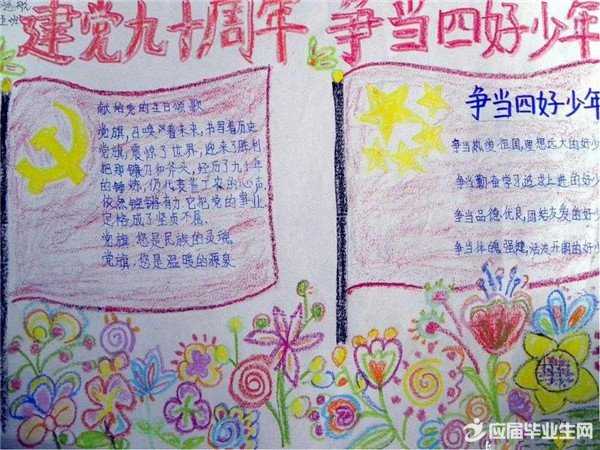 建党九十周年
争当四好少年
献给党的生日颂歌
党旗,召唤着未来,书写着历史
党旗,震惊了世界,迎来了胜利
把那镰刀和斧头,经历了九十年
的锤炼,仍代表着工农的心声,
依然铿锵有力,它把党的事业
定格成了坚贞不屈。
党旗.您是民族的灵魂
党旗.您是温暖的源泉
争当四好少年
争当热爱祖国,理想远大的好少
争当勤奋学习追求上进的好少
争当品德优良,团结友爱的好少
争当体魄强健,活泼开朗的好少
应届毕业生网